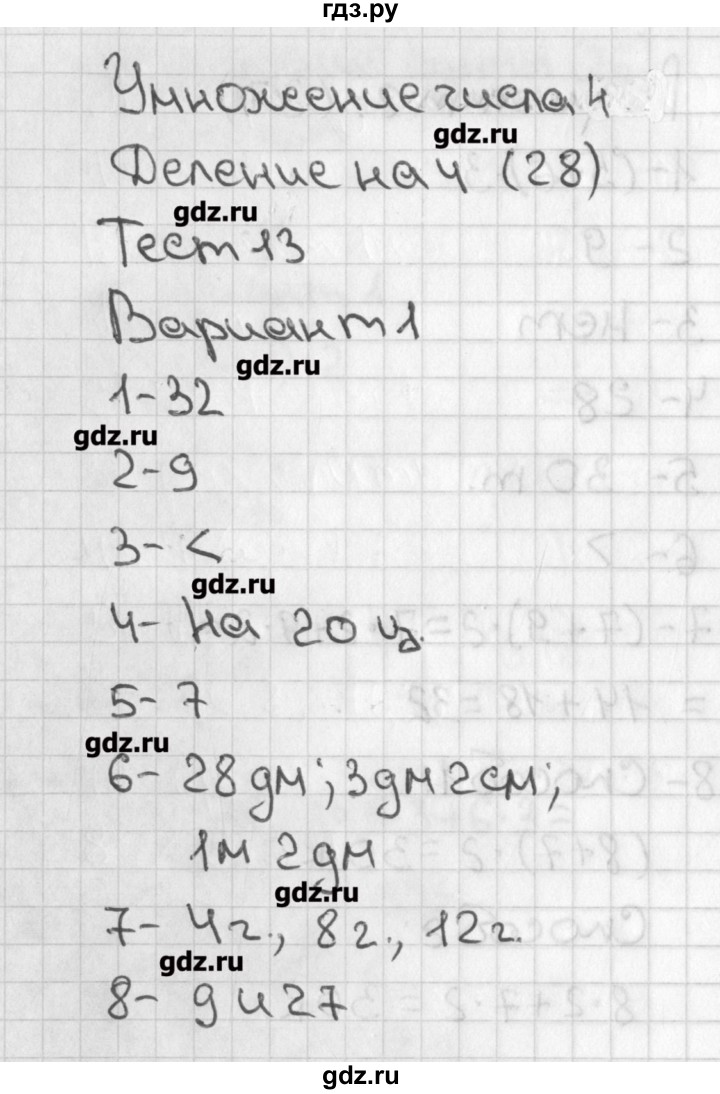 гдз.ру
Умножение числа 4
gdz.ru
Деление на 4 (28)
gdz.ru
Тест 13
Вариант 1
gdz.ru
1- 32
gdz.ru
2- 9
3- <
gdz.ru
4- на 20 ц.
5- 7
gdz.ru
6- 28 дм; 3 дм 2 см;
1 м 2 дм
gdz.ru
7- 4 г., 8 г., 12 г.
gdz.ru
8- 9 и 27
gdz.ru